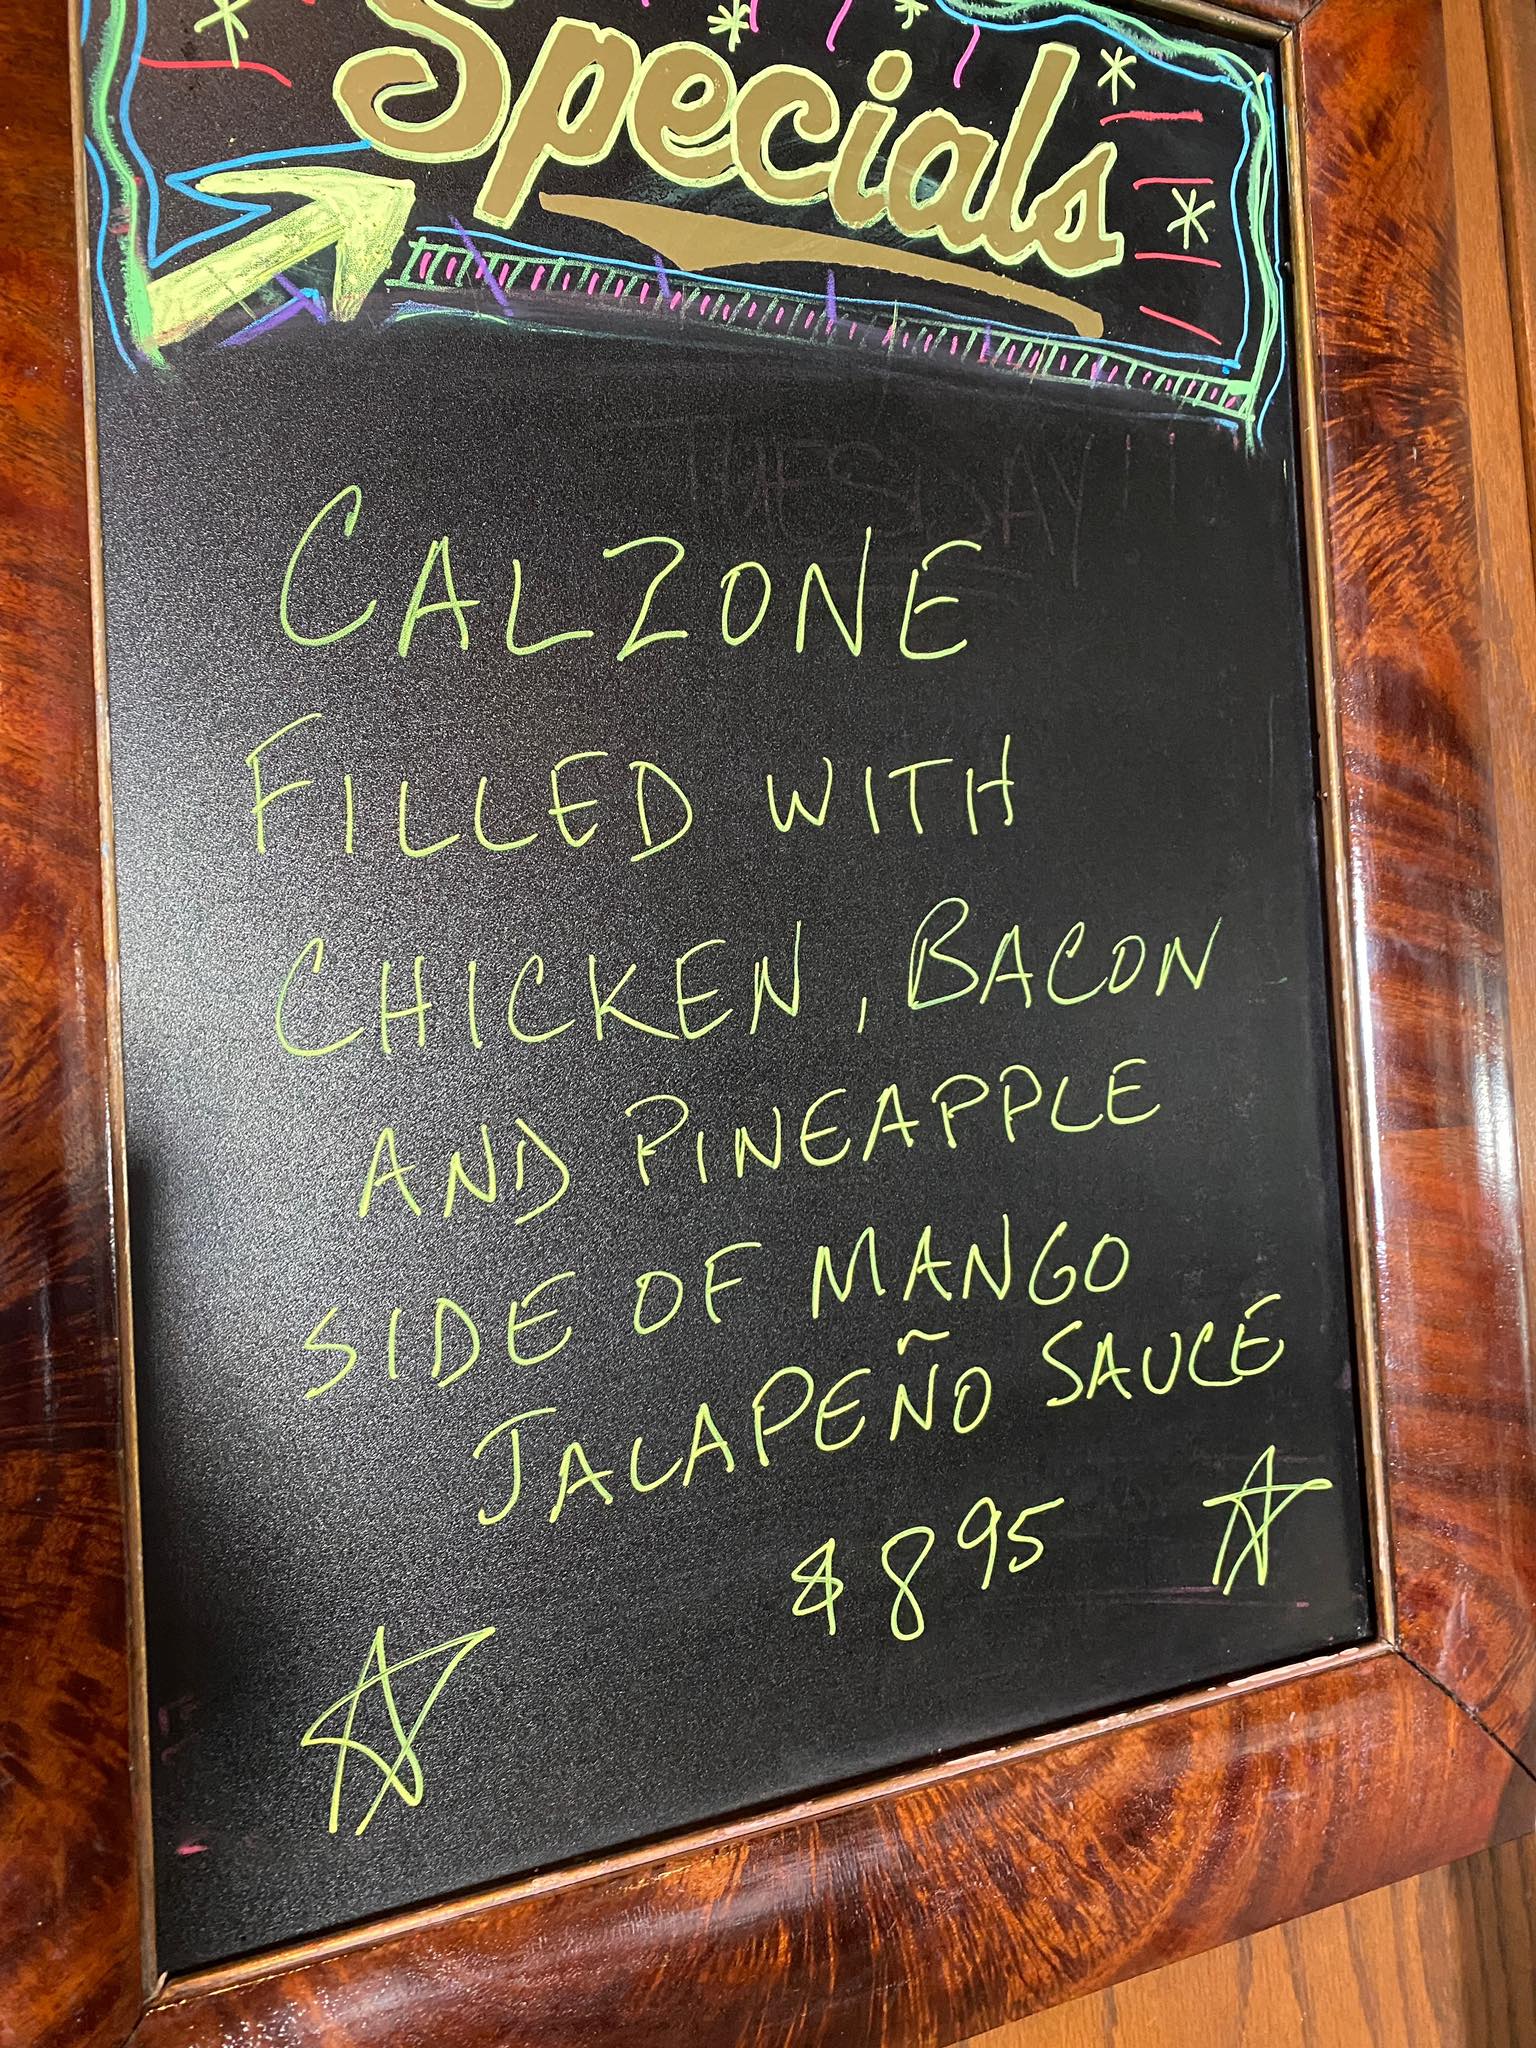 Specials
TUESDAY!!
CALZONE
FILLED WITH
CHICKEN, BACON
AND PINEAPPLE
SIDE OF MANGO
JALAPEÑO SAUCE
$8.95